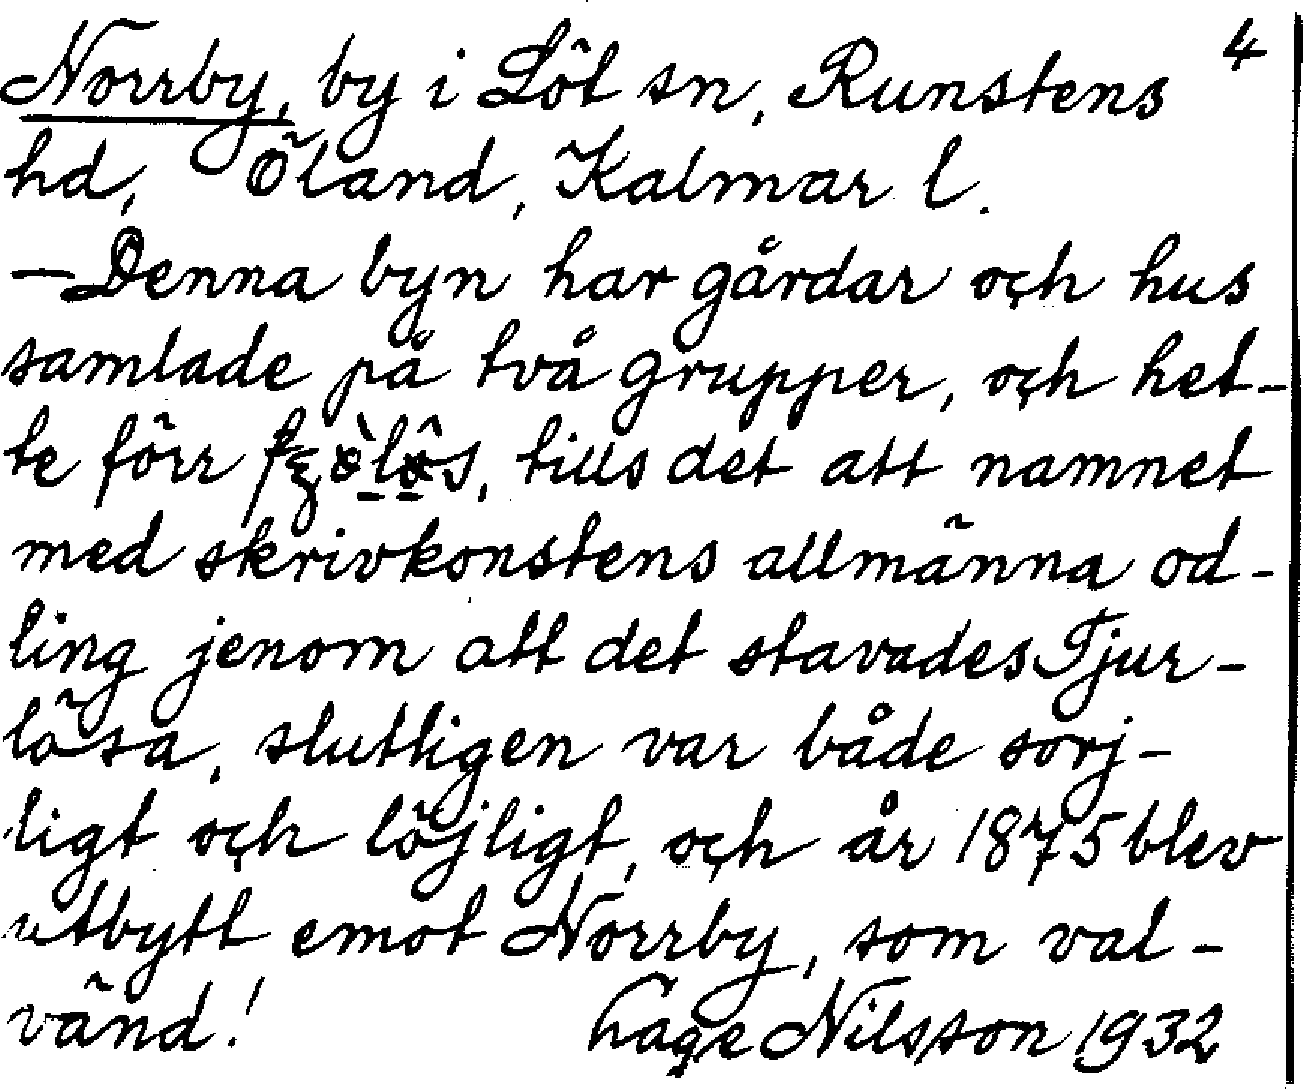 4
Norrby, by i Löt sn, Runstens
hd, Öland, Kalmar l.
—Denna byn har gårdar och hus
samlade på två grupper, och het-
te förr , tills det att namnet
med skrivkonstens allmänna od-
ling jenom att det stavades Tjur-
lösa, slutligen var både sorj-
ligt och löjligt, och år 1875 blev
utbytt emot Norrby, som val-
vänd! Hage Nilsson 1932